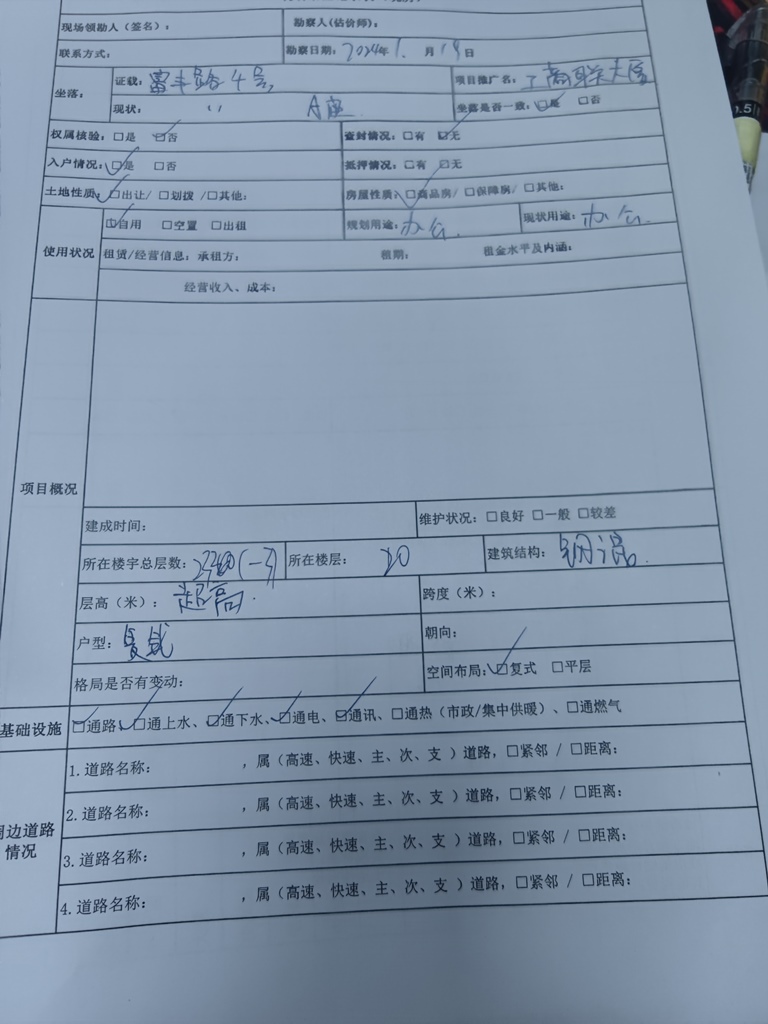 现场领勘人（签名）： 勘察人（估价师）：
联系方式： 勘察日期：2024年1月19日
坐落： 证载：富丰路4号 项目推广名：工商联大厦
现状： 〃 A座 坐落是否一致：☑是 □否
权属核验：□是 ☑否 查封情况：□有 ☑无
入户情况：☑是 □否 抵押情况：□有 ☑无
土地性质：☑出让/ □划拨 /□其他： 房屋性质：☑商品房/ □保障房/ □其他：
使用状况 ☑自用 □空置 □出租 规划用途：办公 现状用途：办公
租赁/经营信息：承租方： 租期： 租金水平及内涵：
经营收入、成本：
项目概况
建成时间： 维护状况：□良好 □一般 □较差
所在楼宇总层数： (-3) 所在楼层：20 建筑结构：钢混
层高（米）：超高 跨度（米）：
户型：复式 朝向：
格局是否有变动： 空间布局：☑复式 □平层
基础设施 ☑通路、☑通上水、☑通下水、☑通电、☑通讯、□通热（市政/集中供暖）、□通燃气
周边道路情况
1.道路名称： ，属（高速、快速、主、次、支 ）道路，□紧邻 / □距离：
2.道路名称： ，属（高速、快速、主、次、支 ）道路，□紧邻 / □距离：
3.道路名称： ，属（高速、快速、主、次、支 ）道路，□紧邻 / □距离：
4.道路名称： ，属（高速、快速、主、次、支 ）道路，□紧邻 / □距离：